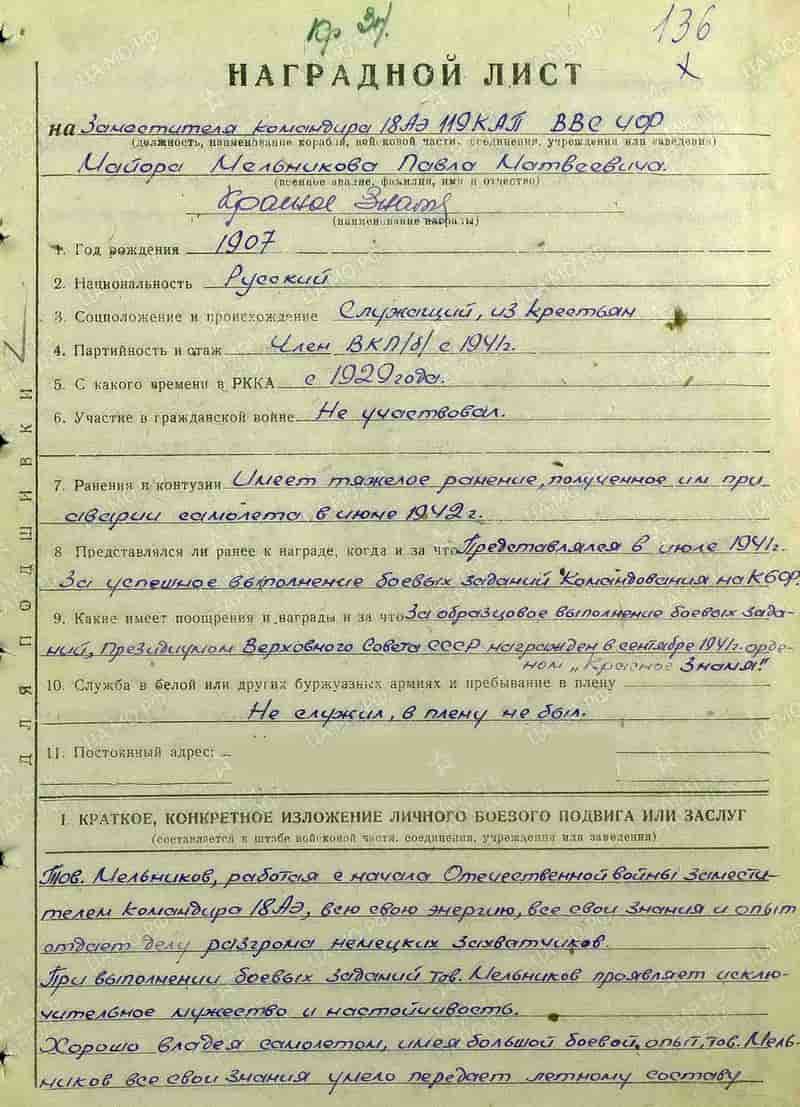 Кр Зн.
136
НАГРАДНОЙ ЛИСТ
на Заместителя командира 18АЭ 119КАП ВВС ЧФ
(должность, наименование корабля, войсковой части, соединения, учреждения или заведения)
Майора Мельникова Павла Матвеевича.
(военное звание, фамилия, имя и отчество)
Красное Знамя
(наименование награды)
1. Год рождения 1907
2. Национальность Русский
3. Соцположение и происхождение Служащий, из крестьян
4. Партийность и стаж Член ВКП/б/ с 1941г.
5. С какого времени в РККА с 1929 года.
6. Участие в гражданской войне Не участвовал.
7. Ранения и контузии Имеет тяжелое ранение, полученное им при
аварии самолета в июне 1942 г.
8 Представлялся ли ранее к награде, когда и за что Представлялся в июле 1941г.
За успешное выполнение боевых заданий командования на КБФ.
9. Какие имеет поощрения и награды и за что За образцовое выполнение боевых зада-
ний, Президиумом Верховного Совета СССР награжден в сентябре 1941г. орде-
ном „Красное Знамя"
10. Служба в белой или других буржуазных армиях и пребывание в плену
Не служил, в плену не был.
11. Постоянный адрес:
I КРАТКОЕ, КОНКРЕТНОЕ ИЗЛОЖЕНИЕ ЛИЧНОГО БОЕВОГО ПОДВИГА ИЛИ ЗАСЛУГ
(составляется в штабе войсковой части, соединения, учреждения или заведения)
Тов. Мельников, работая с начала Отечественной войны замести-
телем командира 18АЭ, всю свою энергию, все свои знания и опыт
отдает делу разгрома немецких захватчиков.
При выполнении боевых заданий тов. Мельников проявляет исклю-
чительное мужество и настойчивость.
Хорошо владея самолетом, имея большой боевой опыт, тов. Мель-
ников все свои знания умело передает летному составу
ДЛЯ ПОДШИВКИ